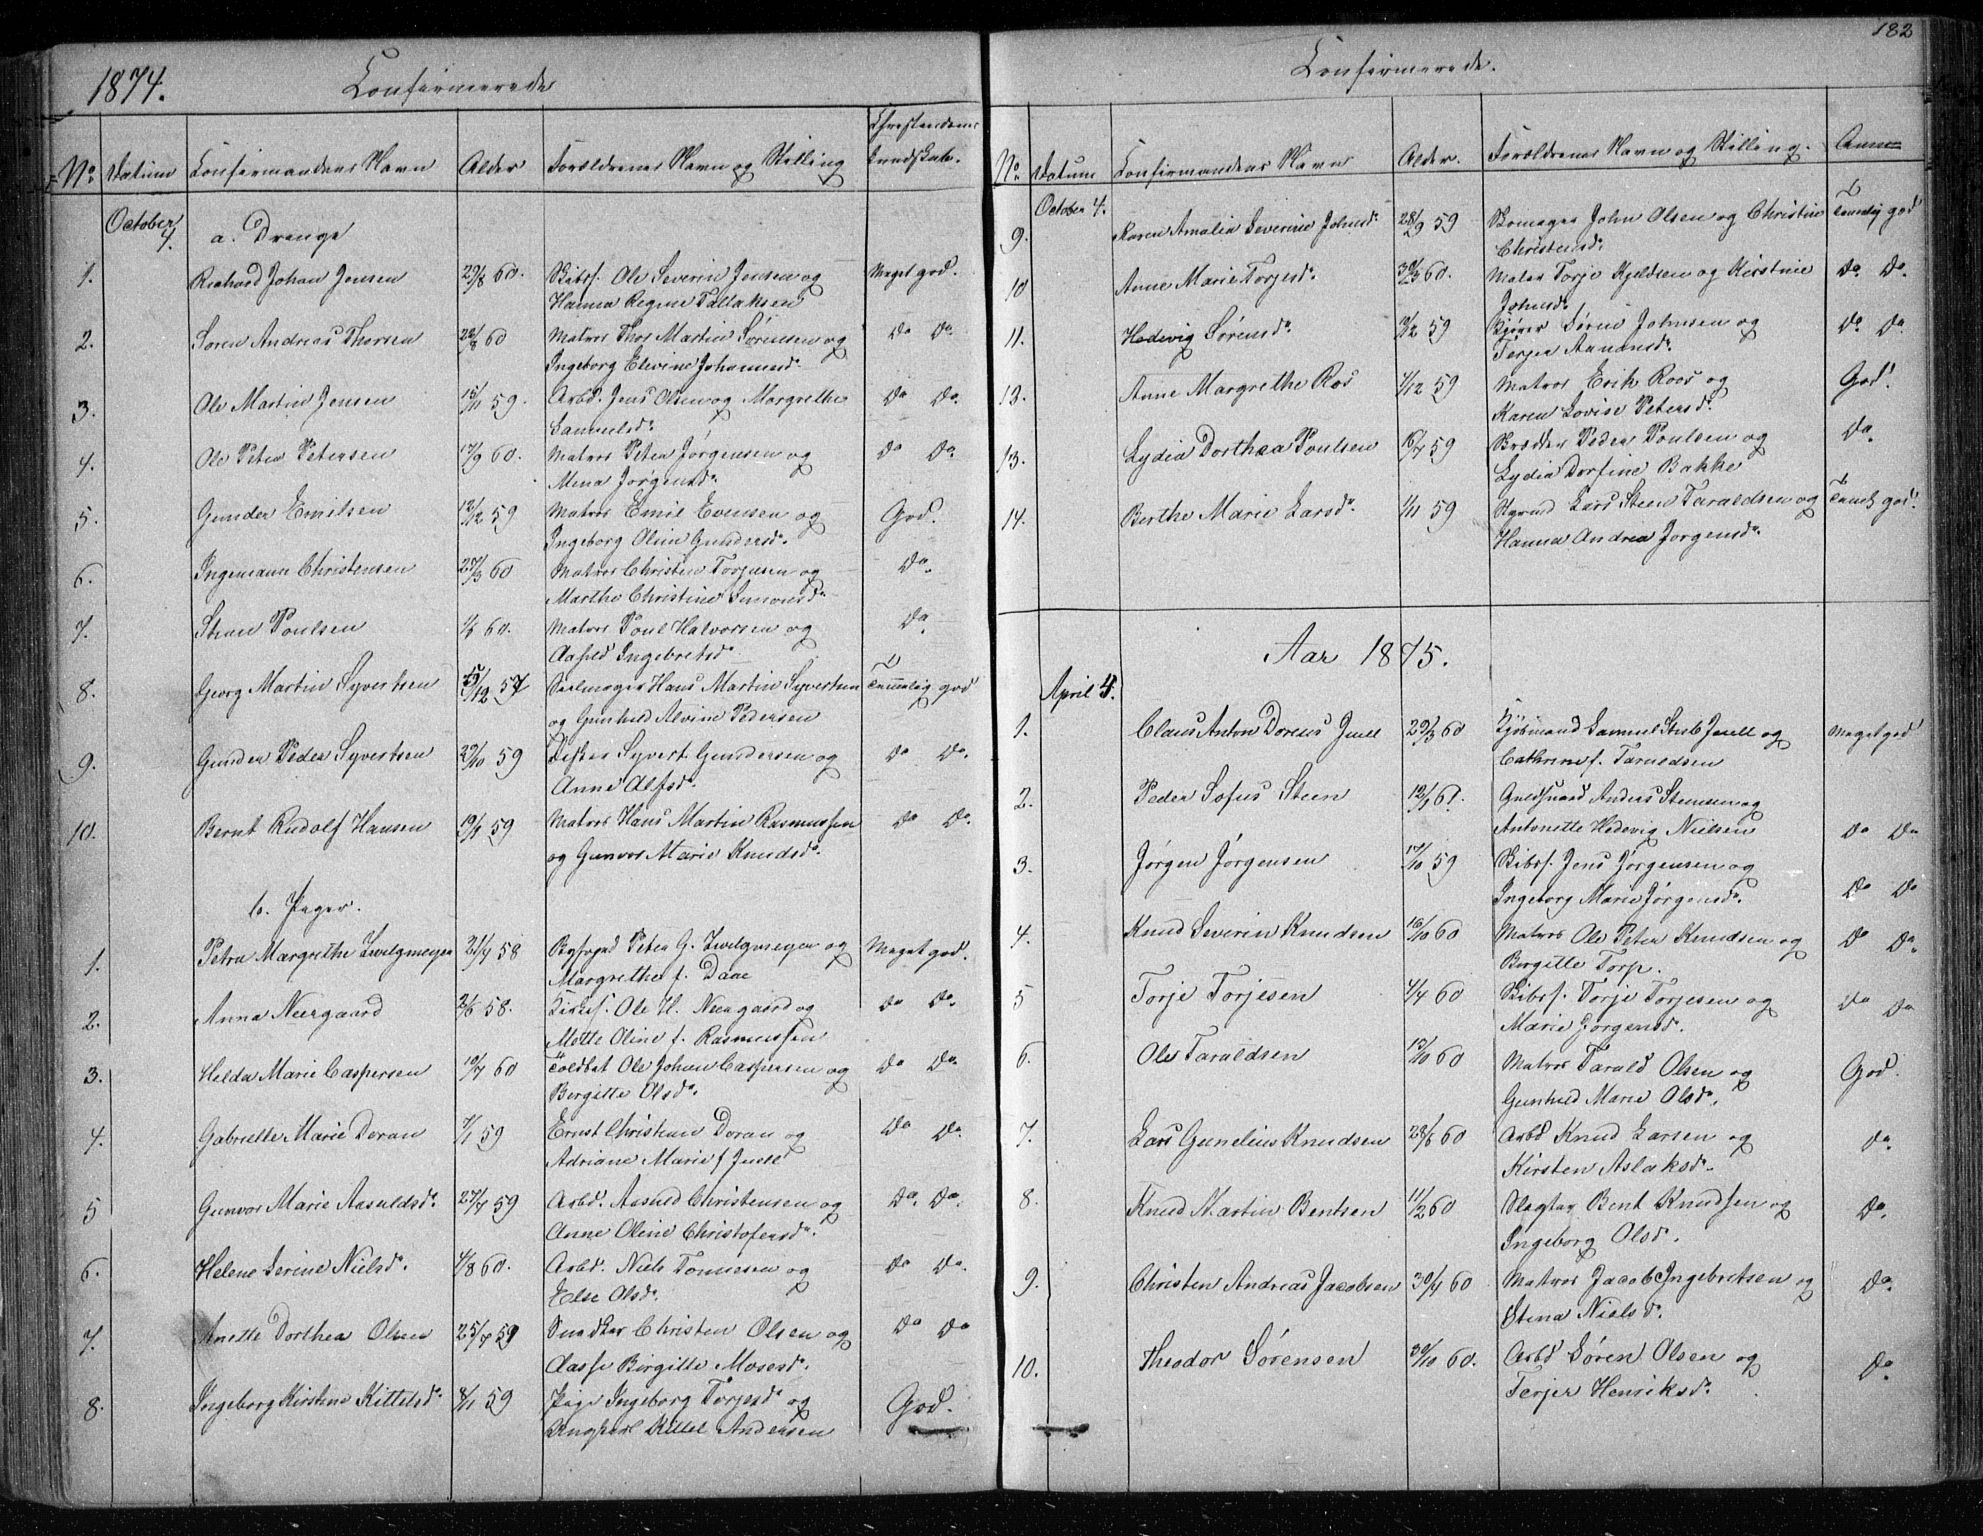 1874. Confirmerede
No. Datum Confirmandens Navn Alder Forældrenes Navn og Stilling Christendoms kundskab.
October 4. a. Drenge
1. Richard Johan Jensen 29/8 60. Skibsf. Ole Severin Jensen og Meget god.
Hanna Regine Tallaksen
2. Søren Andreas Thorsen 28/8 60 Matros Thor Martin Sørensen og Do Do
Ingeborg Elevine Johannesd.
3. Ole Martin Jensen 15/11 59. Arbd. Jens Olsen og Margrethe Do Do.
Samuelsd.
4. Ole Peter Petersen 17/9 60. Matros Peter Jørgensen og Do Do.
Mina Jørgensd.
5. Gunder Emilsen 12/12 59 Matros Emil Evensen og God.
Ingeborg Oline Gundersd.
6. Ingemann Christensen 27/3 60 Matros Christen Torjusen og Do.
Marthe Christine Simonsd.
7. Poulsen 60. Matros Poul Halvorsen og Do.
Aasild Ingebretsd.
8. Georg Martin Syvertsen /12 57 Seilmager Hans Martin Syvertsen Temmelig god
og Gunhild Alvine Pedersen
9. Gunder Peder Syvertsen 29/10 59 Fisker Syvert Gundersen og Do Do.
Anne Alfsd.
10. Bernt Rudolf Hansen 59 Matros Hans Martin Rasmussen Do Do.
og Gunvor Marie Knudsd.
b. Piger.
1. Petra Margrethe Zwilgmeyer 21/4 58 Byfoged Peter G. Zwilgmeyer og Meget god.
Margrethe f. Daae
2. Anna Neergaard 2/6 58. Ole H. Neergaard og Do Do.
Mette Oline f. Rasmussen
3. Helda Marie Caspersen 19/4 60 Toldbet Ole Johan Caspersen og Do Do.
Birgitte Olsd.
4. Gabrielle Marie Doran 59 Ernst Christian Doran og Do Do.
Adriane Marie f Juell
5 Gunvor Marie Aasuldsd. 27/4 59 Arbd. Aasuld Christensen og Do. Do.
Anne Oline Christofersd.
6. Helene Serine Nielsd. 4/8 60. Arbd. Niels Tønnesen og Do Do.
Else Olsd.
7. Anette Dorthea Olsen 25/7 59 Snedker Christen Olsen og Do Do
Aasse Birgitte Mosesd.
8. Ingeborg Kirstine Kittelsd. 8/11 59 Pige Ingeborg Torjesd og God.
Ungkarl Kittel Andersen
182
Confirmerede.
No. Datum Confirmandens Navn Alder. Forældrenes Navn og Stilling. Anm
October 4.
9. Karen Amalia Severine Johnsd. 28/9 59 John Olsen og Christine Temmelig god
Christensd.
10 Anne Marie Torjesd. 30/3 60. Matros Torje Kjeldsen og Kirstine Do Do.
Johnsd.
11. Hedevig Sørensd. 59 Søren Johnsen og Do Do.
Terjer Aanensd.
12. Anne Margrethe Ros 4/12 59 Matros Erik Roos og God!
Karen Lovise Petersd.
13. Lydia Dorthea Poulsen 59 Peder Poulsen og Do.
Lydia Dorfine Bakke
14. Berthe Marie Larsd. 1/11 59 Lars Steen Taraldsen og god.
Hanna Andrea Jørgensd.
Aar 1875.
April 4.
1. Claus Anton Doreus Juell 29/3 60 Kjøbmand Samuel Stub Juell og Meget god
Cathrine f. Taraldsen
2. Peder Sofus Steen 61. Anders Steensen og
Antonette Hedevig Nielsen Do Do
3. Jørgen Jørgensen /10 59 Skibsf. Jens Jørgensen og
Ingeborg Marie Jørgensd. Do Do
4. Knud Severin Knudsen 16/10 60 Matros Ole Peter Knudsen og Do Do.
Birgitte Torp.
5 Torje Torjesen 4/4 60 Skibsf. Torje Torjesen og Do Do
Marie Jørgensd.
6. Ole Taraldsen /10 60 Matros Tarald Olsen og God.
Gunhild Marie Olsd.
7. Lars Gunelius Knudsen 60 Arbd Knud Larsen og Do.
Kirsten Aslaksd.
8. Knud Martin Bentsen 11/2 60 Slagter Bent Knudsen og Do.
Ingeborg Olsd.
9. Christen Andreas Jacobsen 30/4 60 Matros Jacob Ingebretsen og Do.
Stina Nielsd.
10. Theodor Sørensen 30/10 60. Arbd Søren Olsen og Do.
Terjer Henriksd.